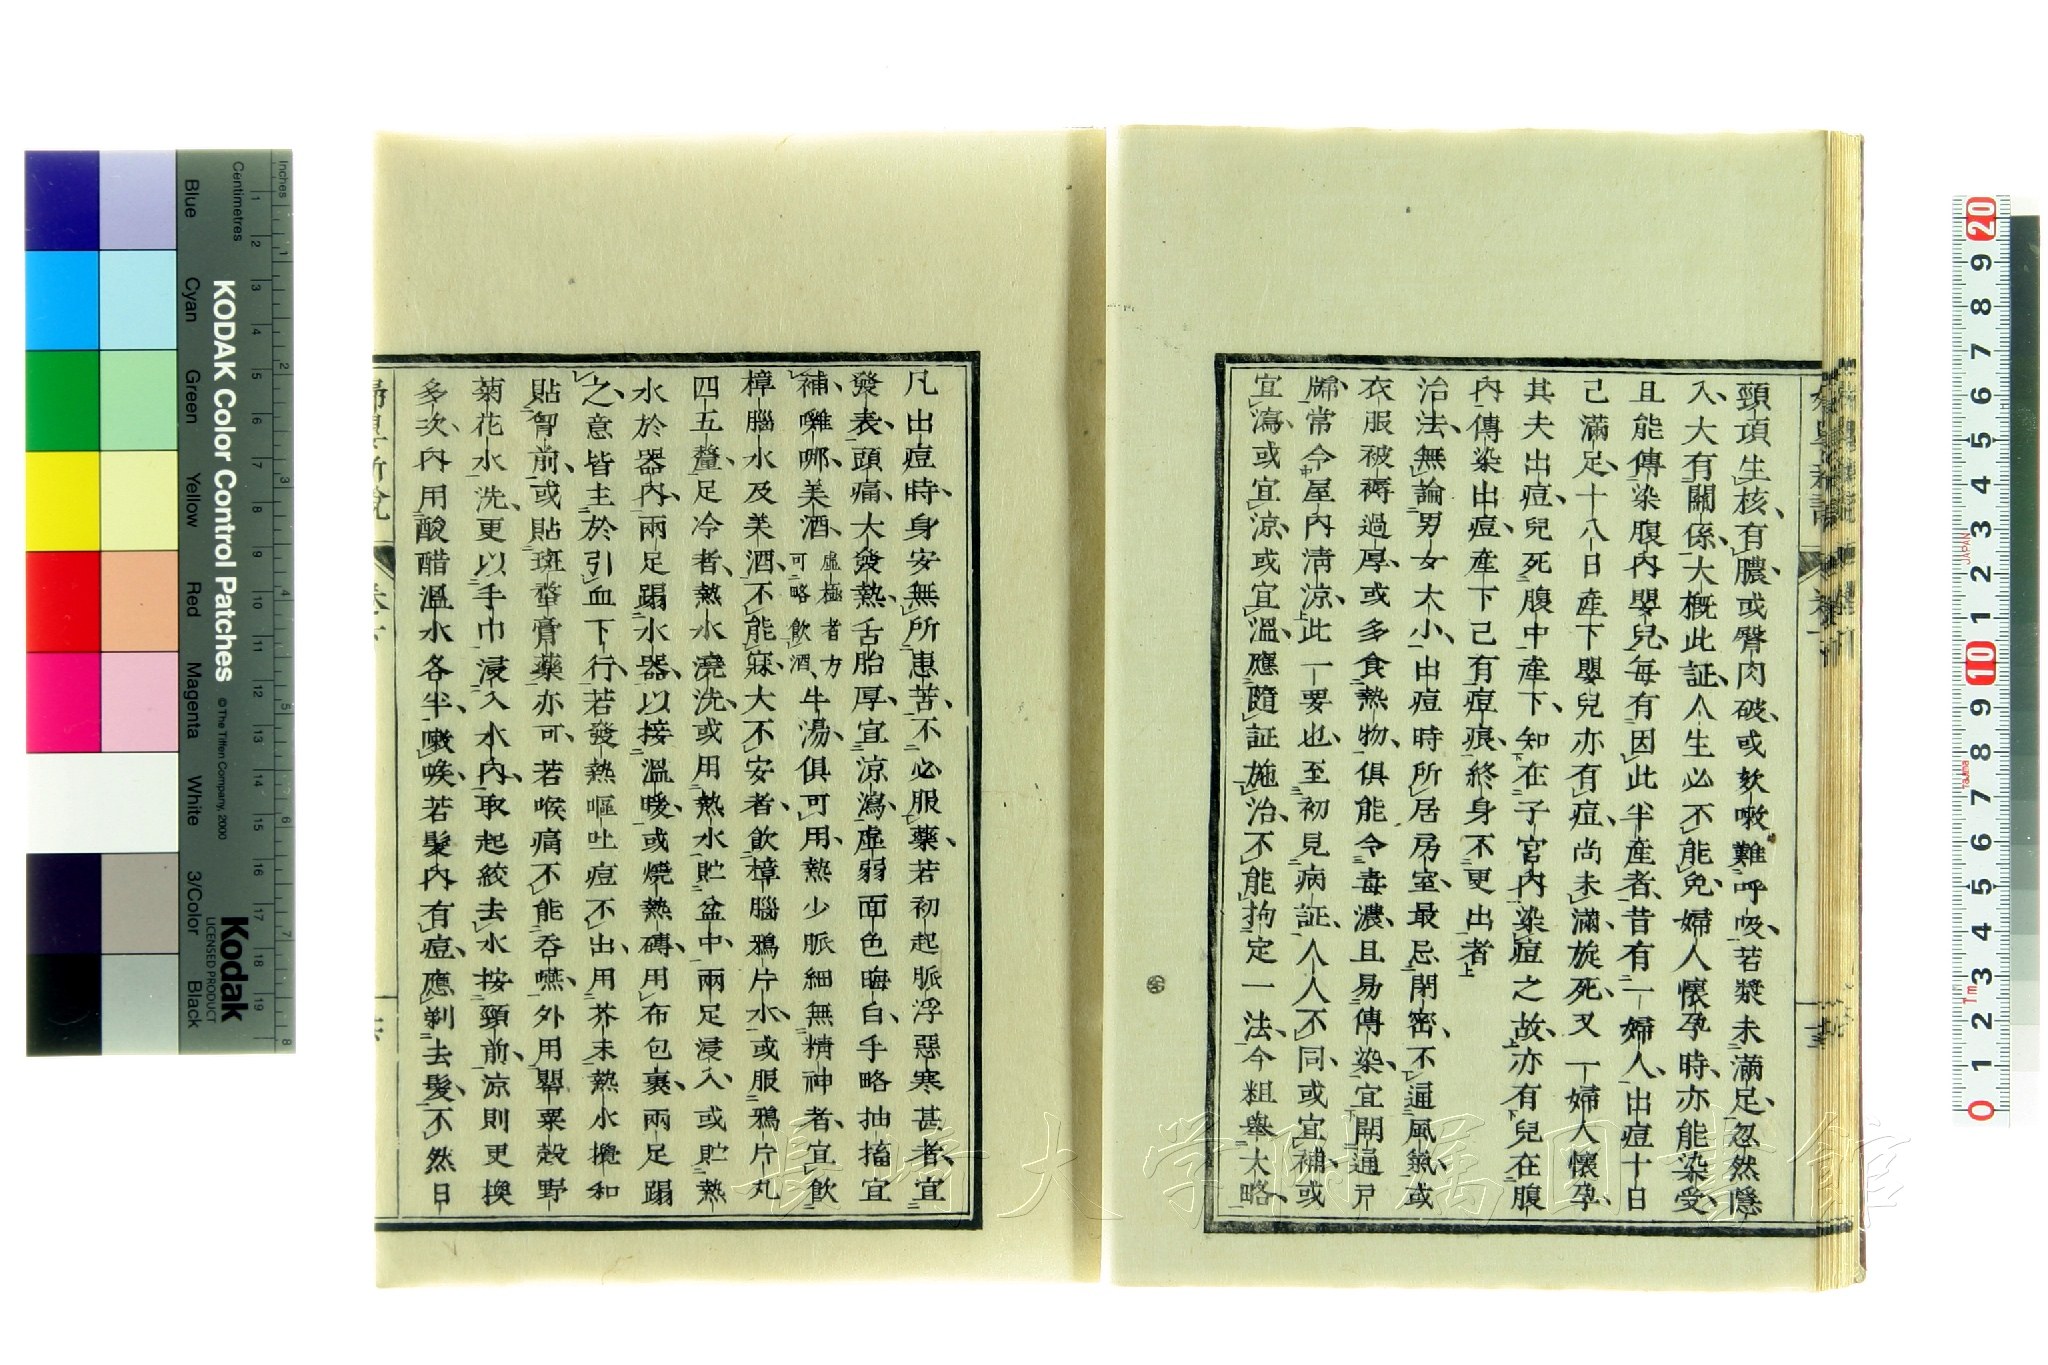 頸項生核有膿或臀肉破或欬嗽難呼吸若漿未滿足忽然隱
入大有關係大概此証人生必不能免婦人懷孕時亦能染受
且能傳染腹內嬰兒每有因此半產者昔有一婦人出痘十日
己滿足十八日產下嬰兒亦有痘尚未滿旋死又一婦人懷孕
其夫出痘兒死腹中產下知在子宮內染痘之故亦有兒在腹
內傳染出痘產下己有痘痕終身不更出者
治法無論男女大小出痘時所居房室最忌閉密不通風氣或
衣服被褥過厚或多食熱物俱能令毒濃且易傳染宜開通戶
牖常令屋內淸涼此一要也至初見病証人人不同或宜補或
宜瀉或宜涼或宜溫應隨証施治不能拘定一法今粗舉大略
凡出痘時身安無所患苦不必服藥若初起脈浮惡寒甚者宜
發表頭痛大發熱舌胎厚宜涼瀉虛弱面色晦白手略抽搐宜
補囄哪美酒虛極者方可略飲酒牛湯俱可用熱少脈細無精神者宜飲
樟腦水及美酒不能寐大不安者飲樟腦鴉片水或服鴉片丸
四五釐足冷者熱水澆洗或用熱水貯盆中兩足浸入或貯熱
水於器內兩足踢水器以接溫暖或燒熱磚用布包裹兩足踢
之意皆主於引血下行若發熱嘔吐痘不出用芥末熱水攪和
貼胷前或貼斑蝥膏藥亦可若喉痛不能吞嚥外用罌粟殼野
菊花水洗更以手巾浸入水內取起絞去水按頸前涼則更換
多次內用酸醋溫水各半嗽喉若髮內有痘應剃去髮不然日
KODAK Color Control Patches
© The Tiffen Company, 2000
Kodak
LICENSED PRODUCT
Inches
Centimetres
Blue
Cyan
Green
Yellow
Red
Magenta
White
3/Color
Black
長崎大学附属図書館
JAPAN
Tajima